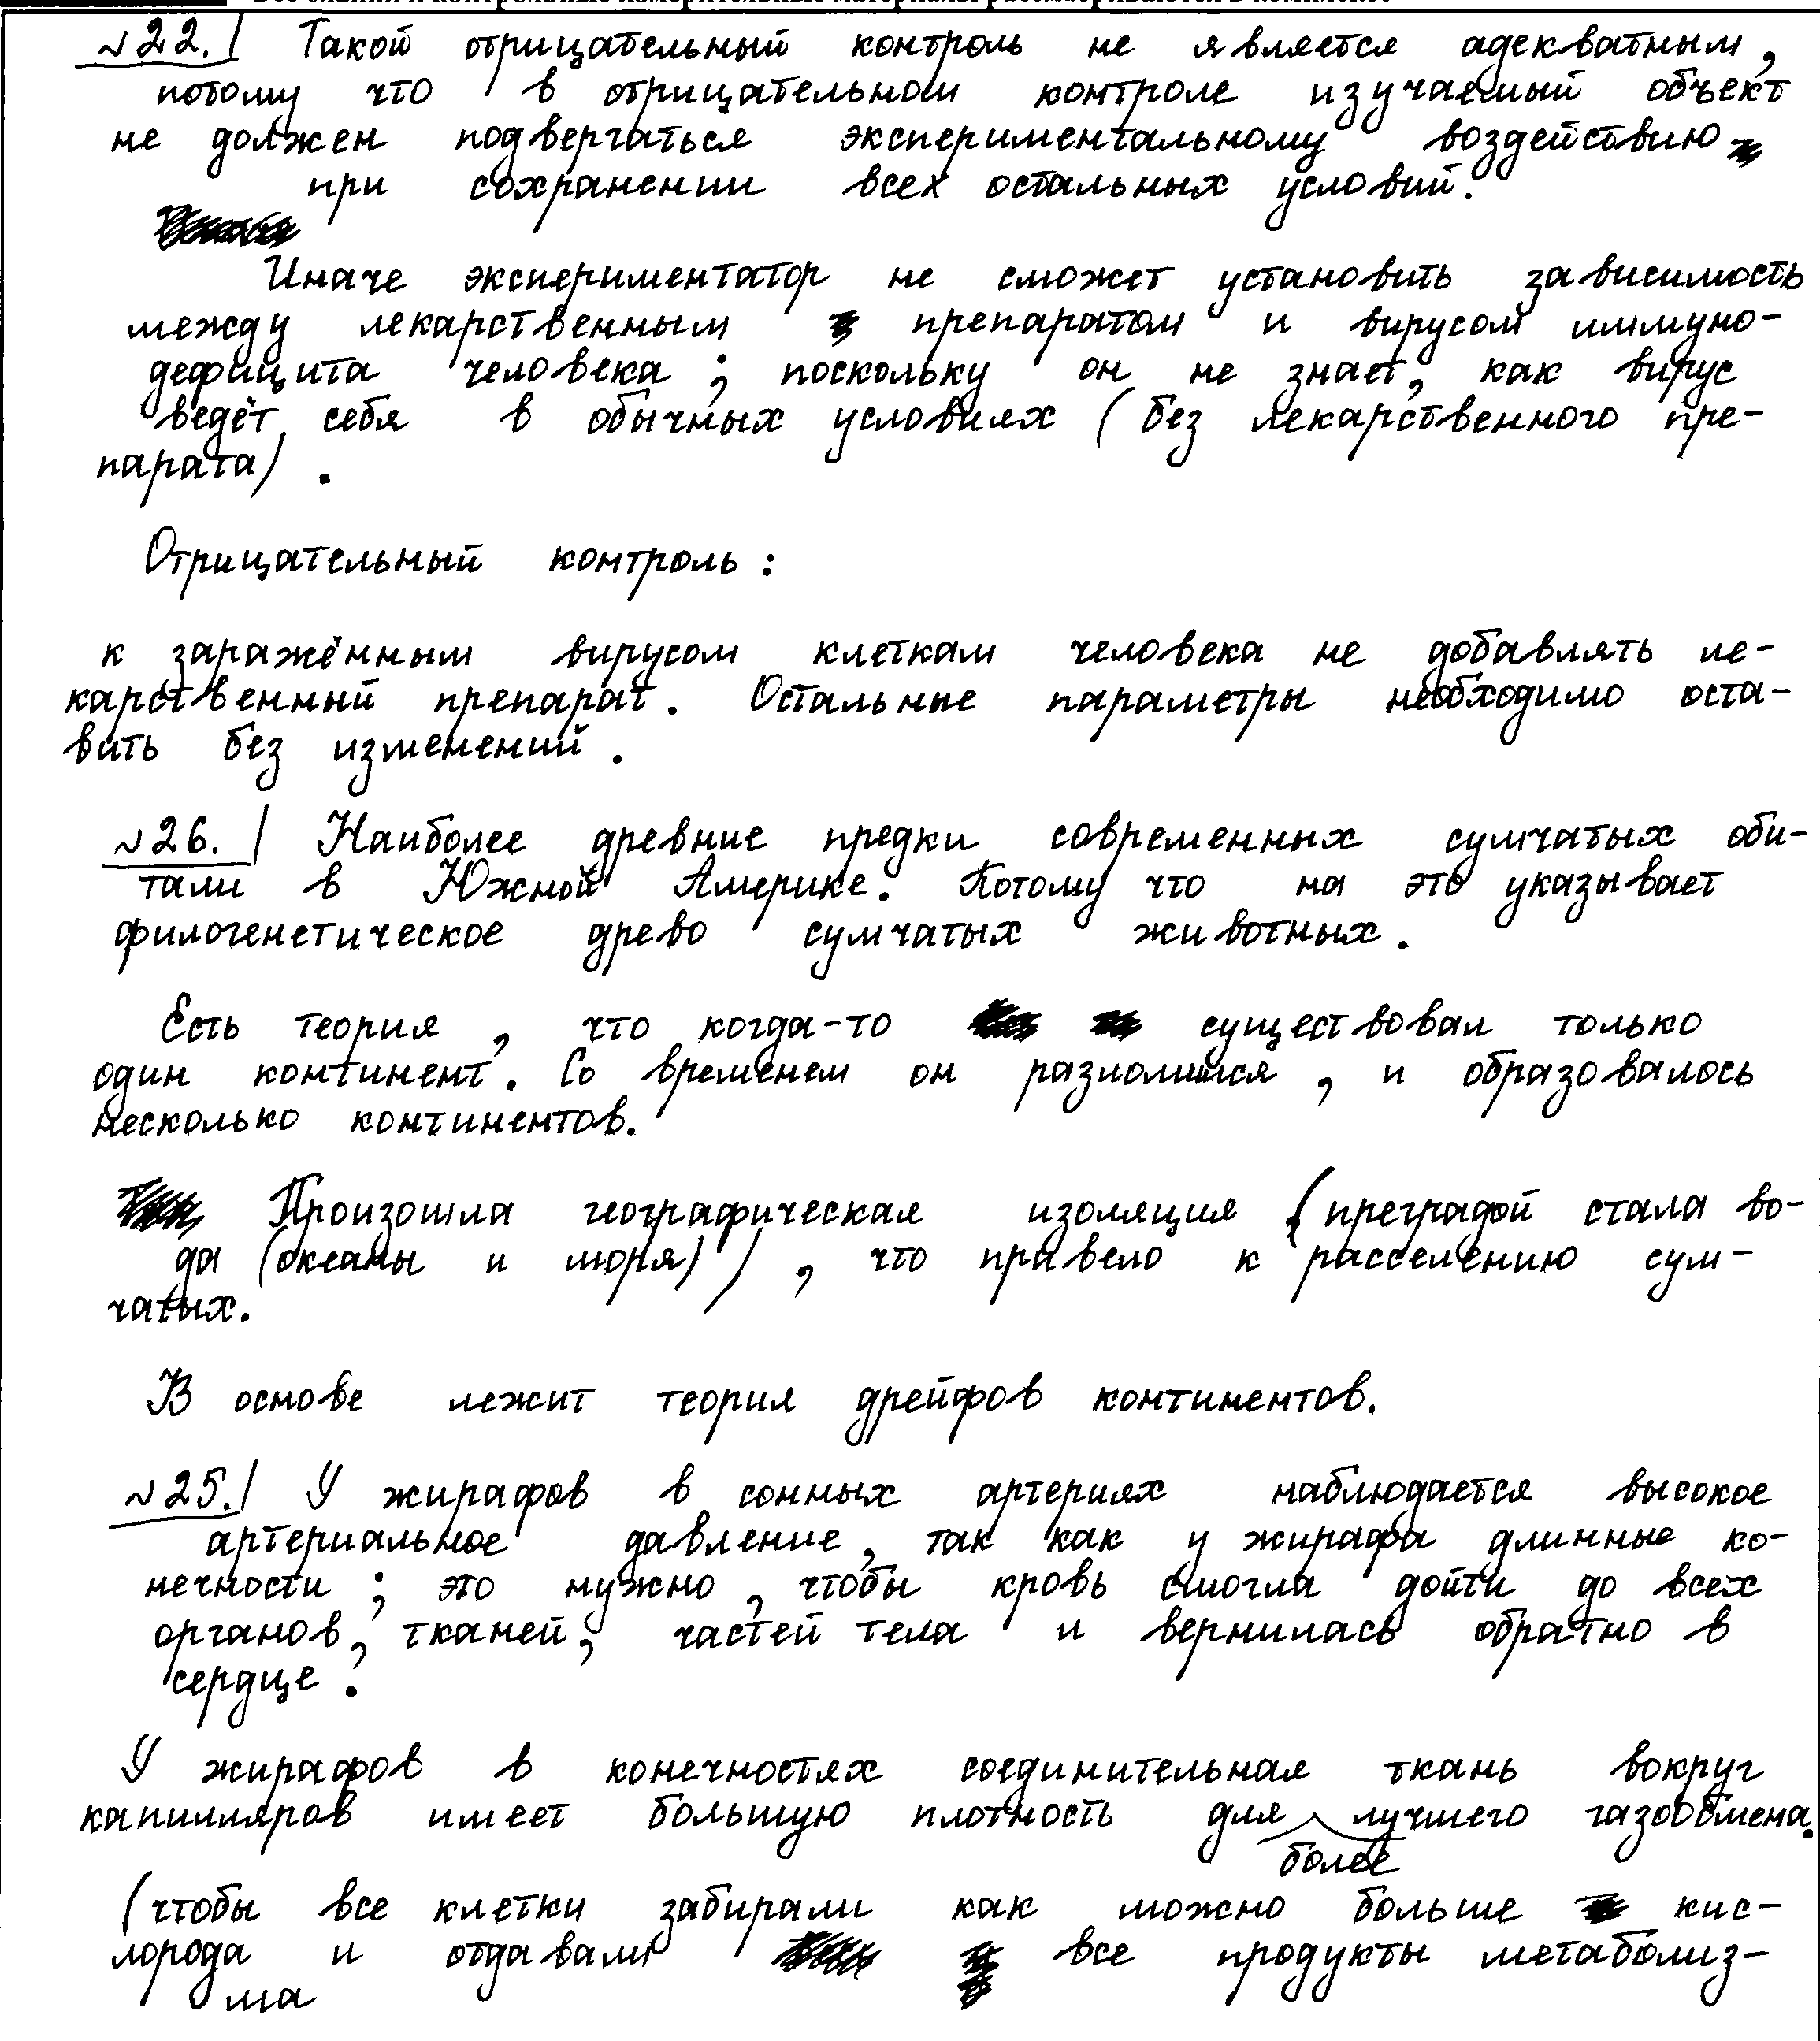 №22. Такой отрицательный контроль не является адекватным,
потому что в отрицательном контроле изучаемый объект
не должен подвергаться экспериментальному воздействию
при сохранении всех остальных условий.
Иначе экспериментатор не сможет установить зависимость
между лекарственным препаратом и вирусом иммуно-
дефицита человека; поскольку он не знает, как вирус
ведёт себя в обычных условиях (без лекарственного пре-
парата).
Отрицательный контроль:
к заражённым вирусом клеткам человека не добавлять ле-
карственный препарат. Остальные параметры необходимо оста-
вить без изменений.
№26. Наиболее древние предки современных сумчатых оби-
тали в Южной Америке. Потому что на это указывает
филогенетическое древо сумчатых животных.
Есть теория, что когда-то существовал только
один континент. Со временем он разломился, и образовалось
несколько континентов.
Произошла географическая изоляция (преградой стала во-
да (океаны и моря)), что привело к расселению сум-
чатых.
В основе лежит теория дрейфов континентов.
№25. У жирафов в сонных артериях наблюдается высокое
артериальное давление, так как у жирафа длинные ко-
нечности; это нужно, чтобы кровь смогла дойти до всех
органов, тканей, частей тела и вернилась обратно в
сердце.
У жирафов в конечностях соединительная ткань вокруг
капилляров имеет большую плотность для лучшего газообмена.
более
(чтобы все клетки забирали как можно больше кис-
лорода и отдавали все продукты метаболиз-
ма